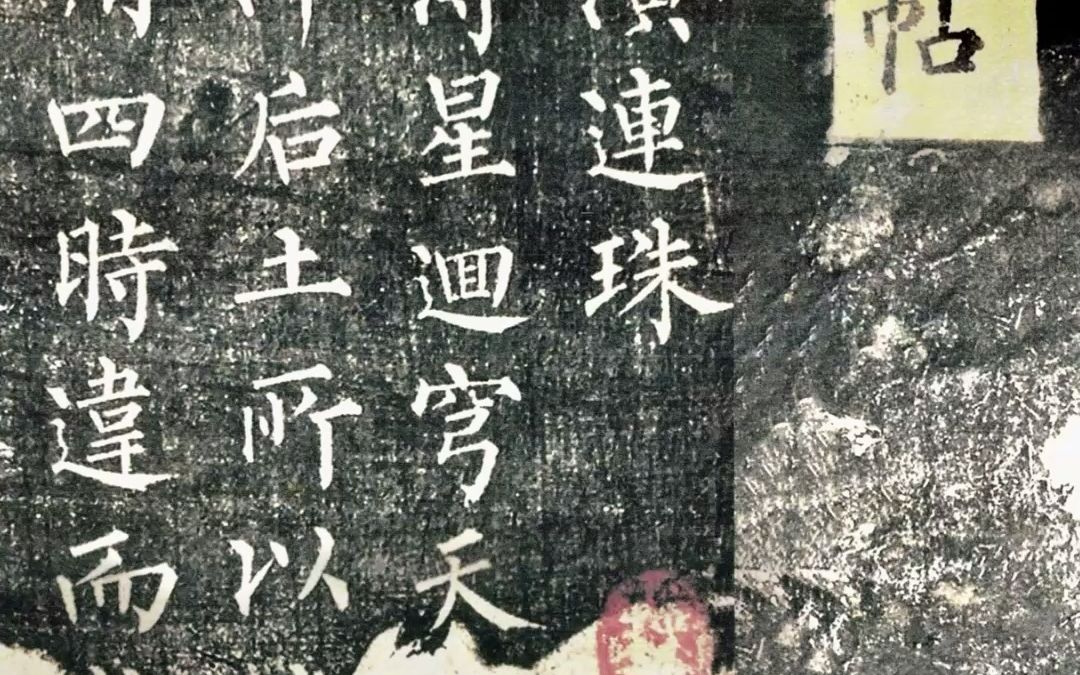 帖
演連珠
星迴穹天
后土所以
四時違而